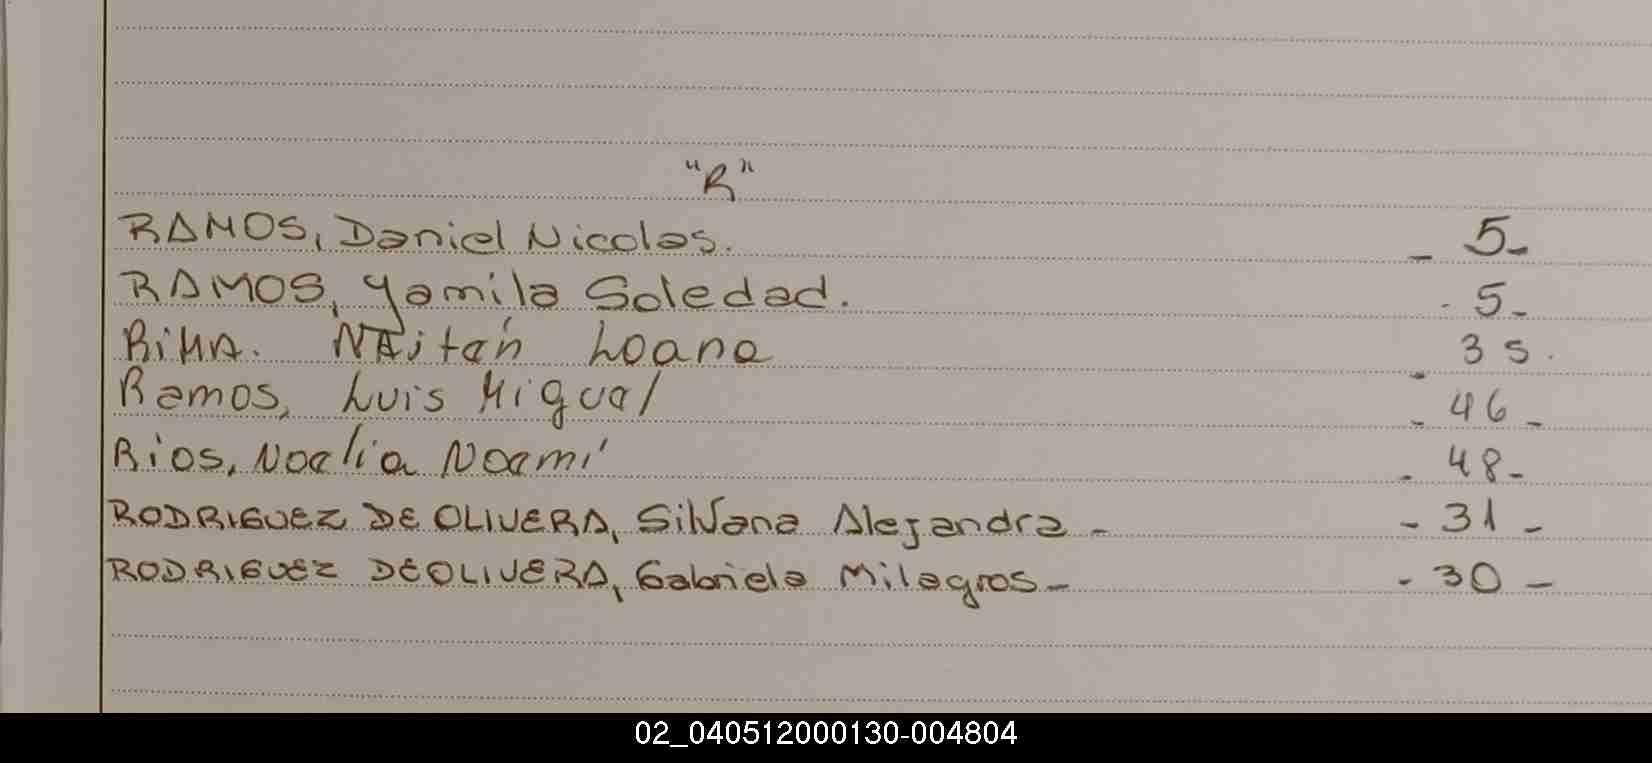 "R"
RAMOS, Daniel Nicolas. - 5-
RAMOS, Yamila Soledad. - 5-
RiMA. NAitán Loana - 35.
Ramos, Luis Miguel - 46 -
Rios, Noelia Noemí - 48-
RODRIGUEZ DE OLIVERA, Silvana Alejandra - - 31 -
RODRIGUEZ DE OLIVERA, Gabriela Milagros - - 30 -
02_040512000130-004804